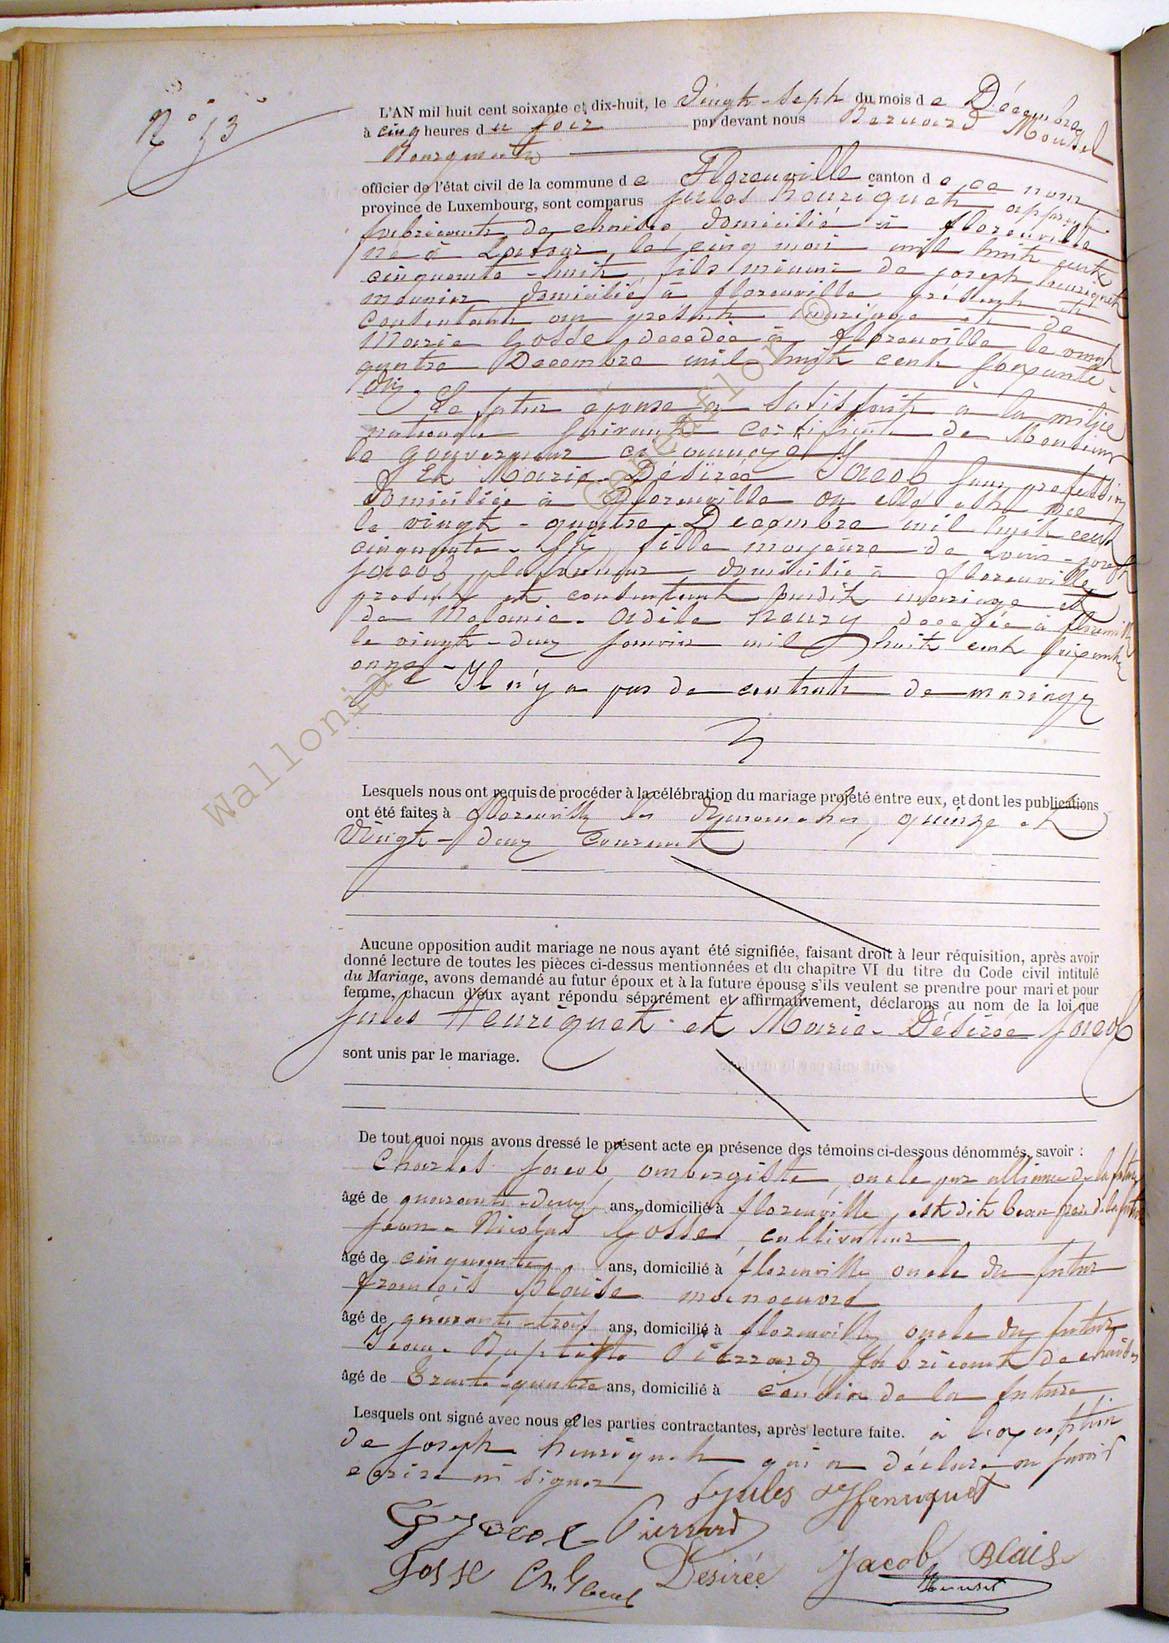 N° 53
L'AN mil huit cent soixante et dix-huit, le vingt-sept du mois de Décembre
à cinq heures du soir par devant nous Bernard Moussel
Bourgmestre
officier de l'état civil de la commune de Florenville canton de ce nom
province de Luxembourg, sont comparus Jules henriquet
fabricant de chaises domicilié à florenville
né à le cinq mai mil huit cent
cinquante-huit, fils mineur de joseph henriquet
meunier domicilié à florenville présent et
consentant au présent mariage et de
Marie Gosse, décédée à florenville le vingt
quatre Décembre mil huit cent soixante
dix. 
Le futur époux a satisfait à la milice
nationale suivant certificat de Monsieur
le gouverneur ci annexé
Et Marie-Désirée Jacob sans profession
domiciliée à florenville où elle est née
le vingt-quatre Décembre mil huit cent
cinquante-six, fille majeure de Louis-joseph
jacob, domicilié à florenville
présent et consentant audit mariage et
de Mélanie-Adèle henry décédée à florenville
le vingt-deux janvier mil huit cent soixante
onze - Il n'y a pas de contrat de mariage
Lesquels nous ont requis de procéder à la célébration du mariage projeté entre eux, et dont les publications
ont été faites à florenville les dimanches, quinze et
vingt-deux courant
Aucune opposition audit mariage ne nous ayant été signifiée, faisant droit à leur réquisition, après avoir
donné lecture de toutes les pièces ci-dessus mentionnées et du chapitre VI du titre du Code civil intitulé
du Mariage, avons demandé au futur époux et à la future épouse s'ils veulent se prendre pour mari et pour
femme, chacun d'eux ayant répondu séparément et affirmativement, déclarons au nom de la loi que
Jules Henriquet et Marie-Désirée jacob
sont unis par le mariage.
De tout quoi nous avons dressé le présent acte en présence des témoins ci-dessous dénommés, savoir :
Charles jacob, aubergiste, oncle par alliance de la future
âgé de quarante-deux ans, domicilié à florenville, est dit beau père de la future
jean-Nicolas Gosse, cultivateur
âgé de cinquante ans, domicilié à florenville, oncle du futur
françois Blaise manoeuvre
âgé de quarante-trois ans, domicilié à florenville oncle du futur
Jean-Baptiste Pierrard, fabricant de chaises
âgé de trente-quatre ans, domicilié à cousin de la future
Lesquels ont signé avec nous et les parties contractantes, après lecture faite. à l'exception
de joseph henriquet qui a déclaré ne savoir
écrire ni signer Jules Henriquet
Jacob Pierrard
Gosse Ch. Jacob Désirée Jacob Blais
Moussel
Wallonia